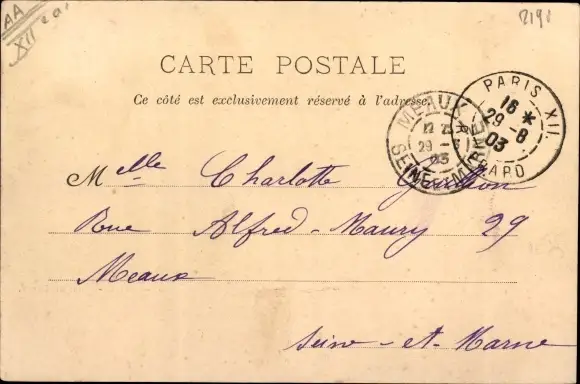 AA
XII
2191
CARTE POSTALE
Ce côté est exclusivement réservé à l'adresse.
PARIS XII.
16 *
29 - 8
03
MEAUX
29 - 8
03
SEINE-ET-MARNE
Melle Charlotte
Rue Alfred-Maury 29
Meaux
Seine-et-Marne